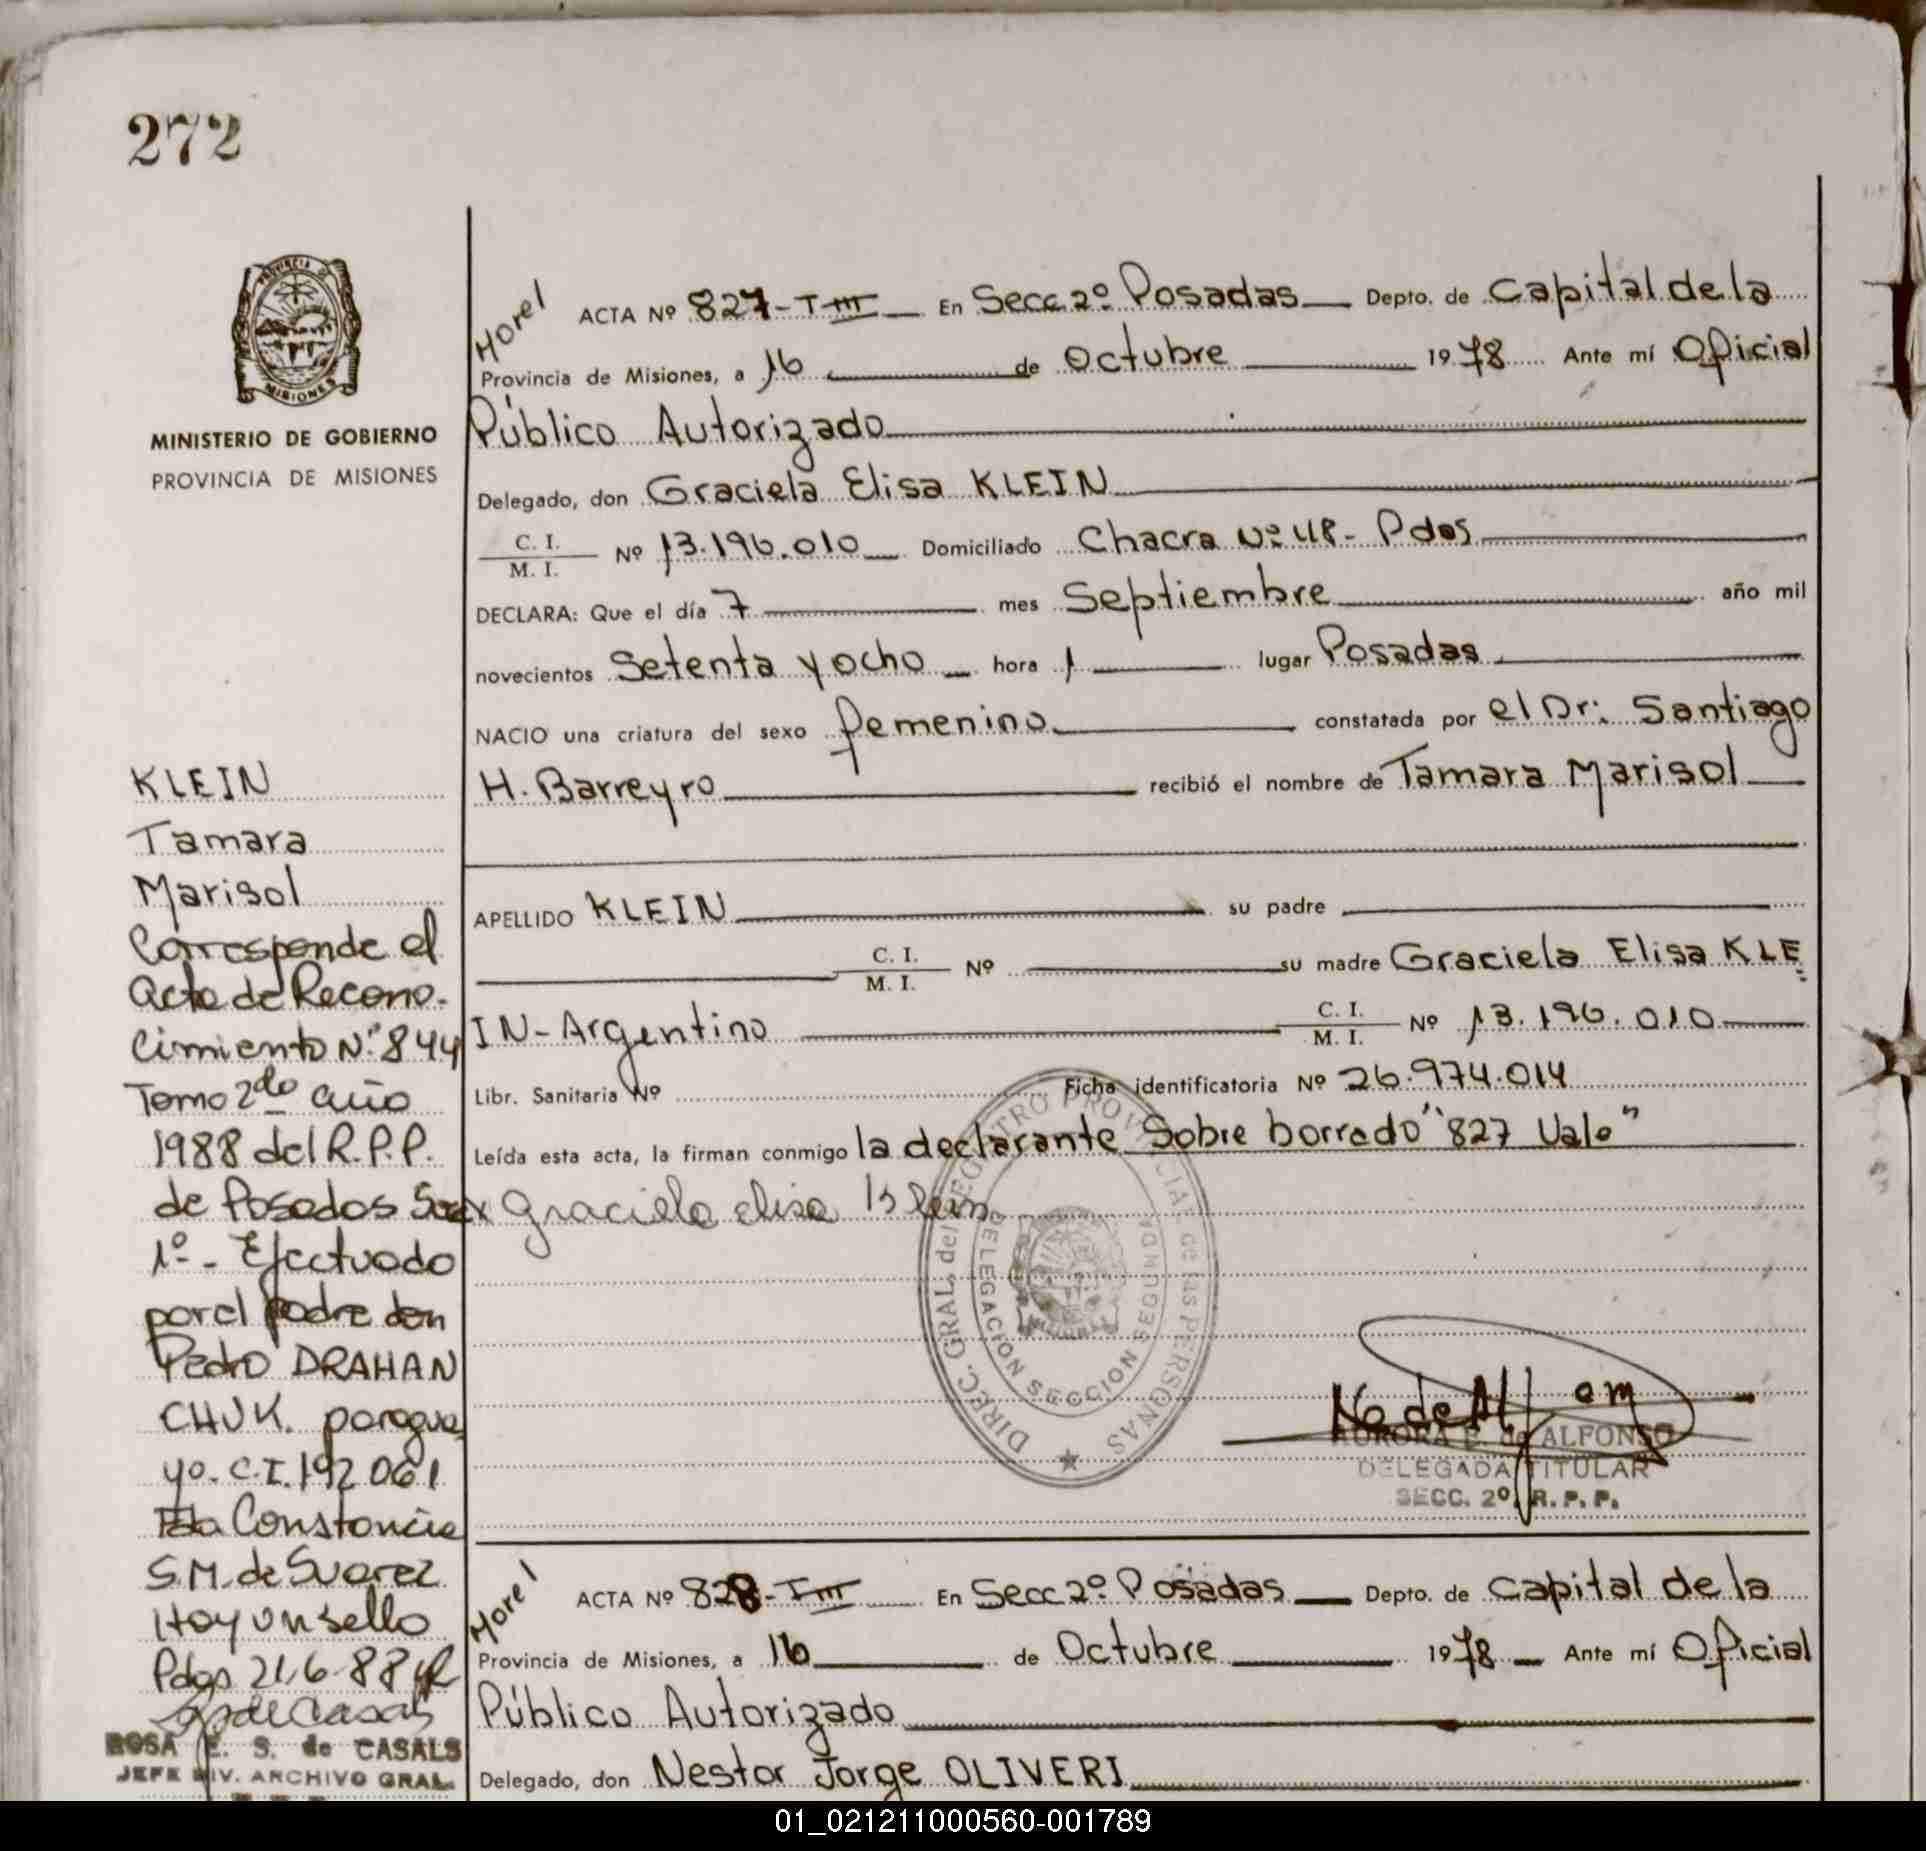 272
PROVINCIA DE
MISIONES
MINISTERIO DE GOBIERNO
PROVINCIA DE MISIONES
KLEIN
Tamara
Marisol
Corresponde el
Acta de Recono-
cimiento N.º 844
Tomo 2do año
1988 del R.P.P.
de Posadas Secc
1º- Efectuado
por el padre don
Pedro DRAHAN
CHUK. paragua
yo. C.I. 192 061
Fda Constancia
S.M. de Suarez
Hay un sello
Pdas 21-6-88
ROSA E. S. de CASALS
JEFE DIV. ARCHIVO GRAL.
Morel
ACTA Nº 827-T III En Secc 2º Posadas Depto. de Capital de la
Provincia de Misiones, a 16 de Octubre 1978 Ante mí Oficial
Público Autorizado
Delegado, don Graciela Elisa KLEIN
C. I.
M. I. Nº 13.196.010 Domiciliado Chacra Nº 48- Pdas
DECLARA: Que el día 7 mes Septiembre año mil
novecientos Setenta y ocho hora 1 lugar Posadas
NACIO una criatura del sexo femenino constatada por el Dr: Santiago
H. Barreyro recibió el nombre de Tamara Marisol
APELLIDO KLEIN su padre
C. I.
M. I. Nº su madre Graciela Elisa KLE
IN-Argentino C. I.
M. I. Nº 13.196.010
Libr. Sanitaria Nº Ficha identificatoria Nº 26.974.014
Leída esta acta, la firman conmigo la declarante Sobre borrado "827 Vale"
x Graciela elisa Klein
DIREC. GRAL. del REGISTRO PROVINCIAL de las PERSONAS
DELEGACION SECCION SEGUNDA
AURORA E. de ALFONSO
DELEGADA TITULAR
SECC. 2º. R. P. P.
Morel
ACTA Nº 828-T III En Secc 2º Posadas Depto. de Capital de la
Provincia de Misiones, a 16 de Octubre 1978 Ante mí Oficial
Público Autorizado
Delegado, don Nestor Jorge OLIVERI
01_021211000560-001789